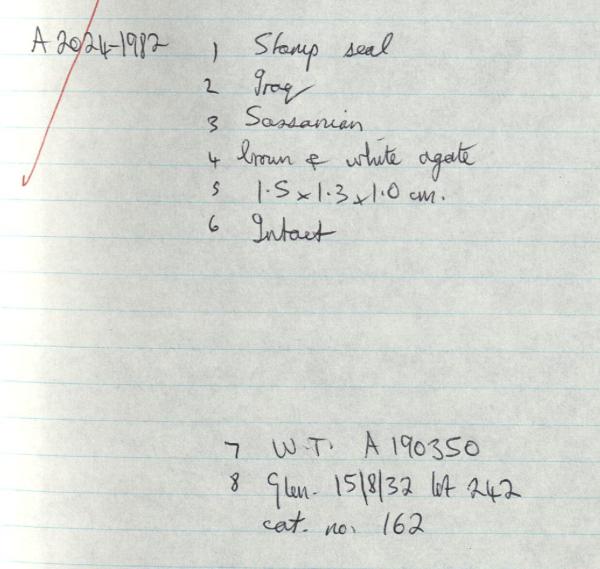 A 2024-1982 1 Stamp seal
2 Iraq
3 Sassanian
4 brown & white agate
5 1.5 x 1.3 x 1.0 cm.
6 Intact
7 W.T. A 190350
8 Glen. 15/8/32 lot 242
cat. no. 162